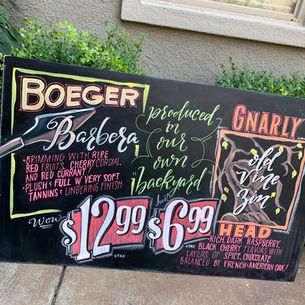 BOEGER
Barbera
• BRIMMING WITH RIPE
RED FRUITS, CHERRY CORDIAL
AND RED CURRANT
• PLUSH & FULL W/ VERY SOFT
TANNINS & LINGERING FINISH
Wow
$12.99
+TAX
produced
in
our
own
"backyard"
Just
$6.99
+TAX
GNARLY
old
vine
zin
HEAD
RICH, DARK RASPBERRY,
BLACK CHERRY FLAVORS WITH
LAYERS OF SPICE, CHOCOLATE
BALANCED BY FRENCH & AMERICAN OAK!